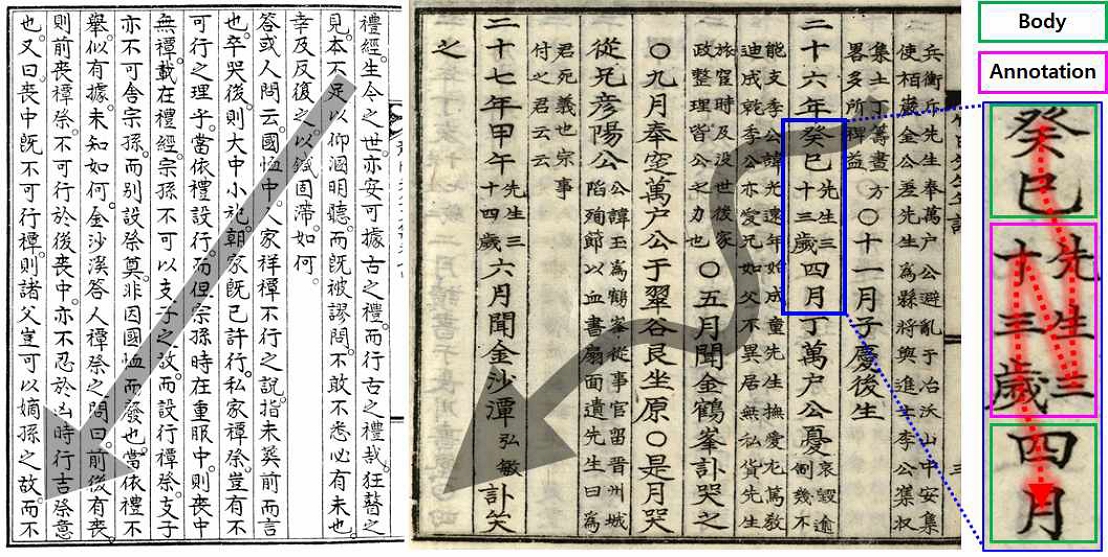 禮經生今之世亦安可據古之禮而行古之禮哉狂瞽之
見本不足以仰溷明聽而旣被謬問不敢不悉心有未也
幸反反復之以鍼固滯如何
答或人問云國恤中人家祥禫不行之說指未葬前而言
也卒哭後則大中小祀朝家旣已許行私家禫祭豈有不
可行之理乎當依禮設行而但宗孫時在重服中則喪中
無禫載在禮經宗孫不可以支子之故而設行禫祭支子
亦不可舍宗孫而別設祭奠非因國恤而發也當依禮不
舉似有據未知如何金沙溪答人禫祭之問曰前後有喪
則前喪禫祭不可行於後喪中亦不忍於凶時行吉祭意
也又曰喪中旣不可行禫則諸父豈可以嫡孫之故而不
兵衡丘先生奉萬戶公避亂于冶沃山中安集
使栢巖金公差先生爲縣將與進士李公
集士丁籌畫方
畧多所裨益
〇十一月子慶後生
二十六年癸巳先生三十三歲四月丁萬戶公憂哀毀逾制幾不
能支李公諱光遠年始成童先生撫愛尤篤敎
迪成就李公亦愛兄如父不異居無私貨先生
旅窆時及沒世後家
政整理皆公之力也
〇五月聞金鶴峯訃哭之
〇九月奉窆萬戶公于翠谷艮坐原〇是月哭
從兄彥陽公
公諱玉爲鶴峯從事官留晋州城
陷殉節以血書扇面遺先生曰爲
君死義也宗事
付之君云云
二十七年甲午先生三十四歲六月聞金沙潭弘敏訃哭
之
Body
Annotation
癸巳
先生三
十三歲
四月